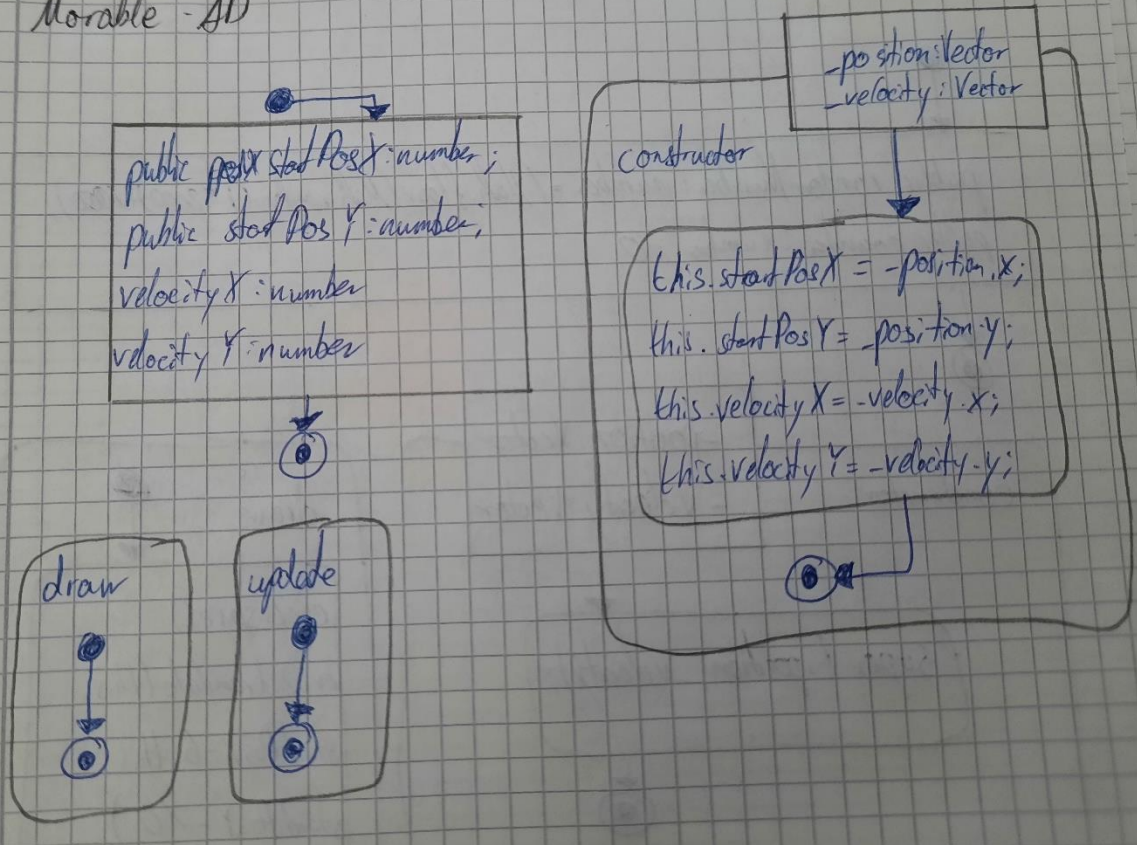 Movable - AD
public startPosX : number;
public startPos Y : number;
velocity X : number
velocity Y : number
draw
update
_position : Vector
_velocity : Vector
constructor
this.startPosX = _position.x;
this.startPosY = _position.y;
this.velocity X = _velocity.x;
this.velocity Y = _velocity.y;